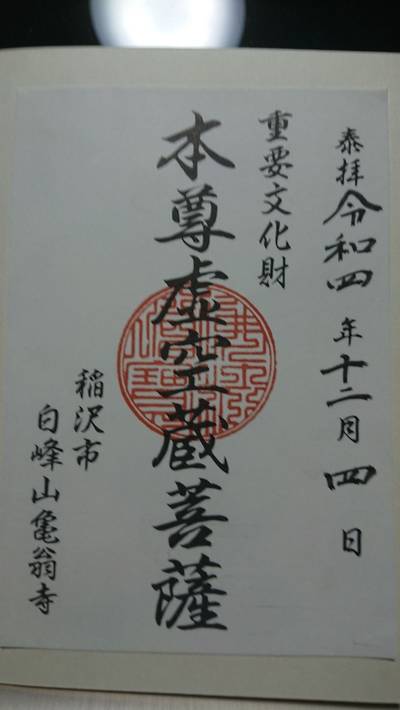 奉拝 令和四年十二月四日
重要文化財
本尊虚空蔵菩薩
稲沢市
白峰山亀翁寺